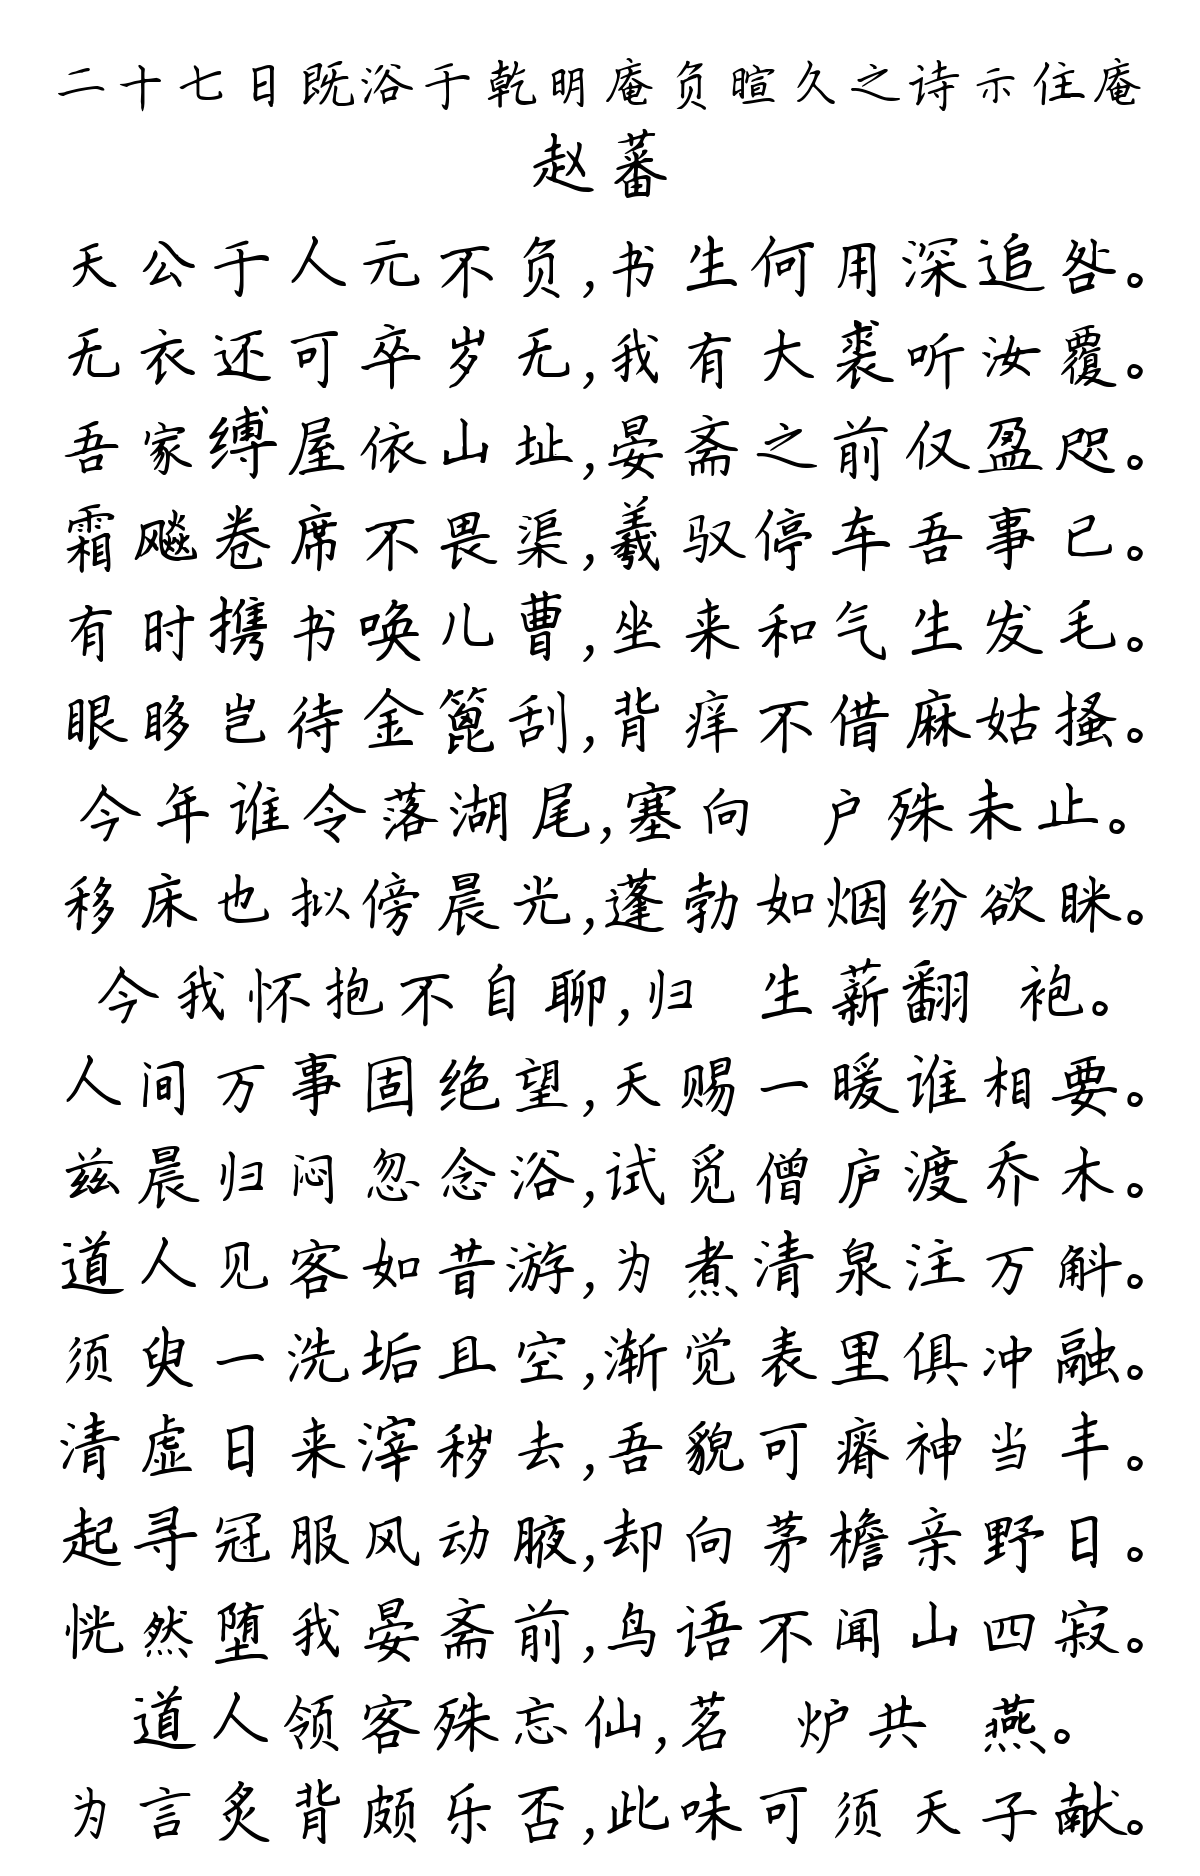 二十七日既浴于乾明庵负暄久之诗示住庵
赵蕃
天公于人元不负,书生何用深追咎。
无衣还可卒岁无,我有大裘听汝覆。
吾家缚屋依山址,晏斋之前仅盈咫。
霜飚卷席不畏渠,羲驭停车吾事已。
有时携书唤儿曹,坐来和气生发毛。
眼眵岂待金篦刮,背痒不借麻姑搔。
今年谁令落湖尾,塞向 户殊未止。
移床也拟傍晨光,蓬勃如烟纷欲眯。
今我怀抱不自聊,归 生薪翻 袍。
人间万事固绝望,天赐一暖谁相要。
兹晨归闷忽念浴,试觅僧庐渡乔木。
道人见客如昔游,为煮清泉注万斛。
须臾一洗垢且空,渐觉表里俱冲融。
清虚日来滓秽去,吾貌可瘠神当丰。
起寻冠服风动腋,却向茅檐亲野日。
恍然堕我晏斋前,鸟语不闻山四寂。
道人领客殊忘仙,茗 炉共 燕。
为言炙背颇乐否,此味可须天子献。